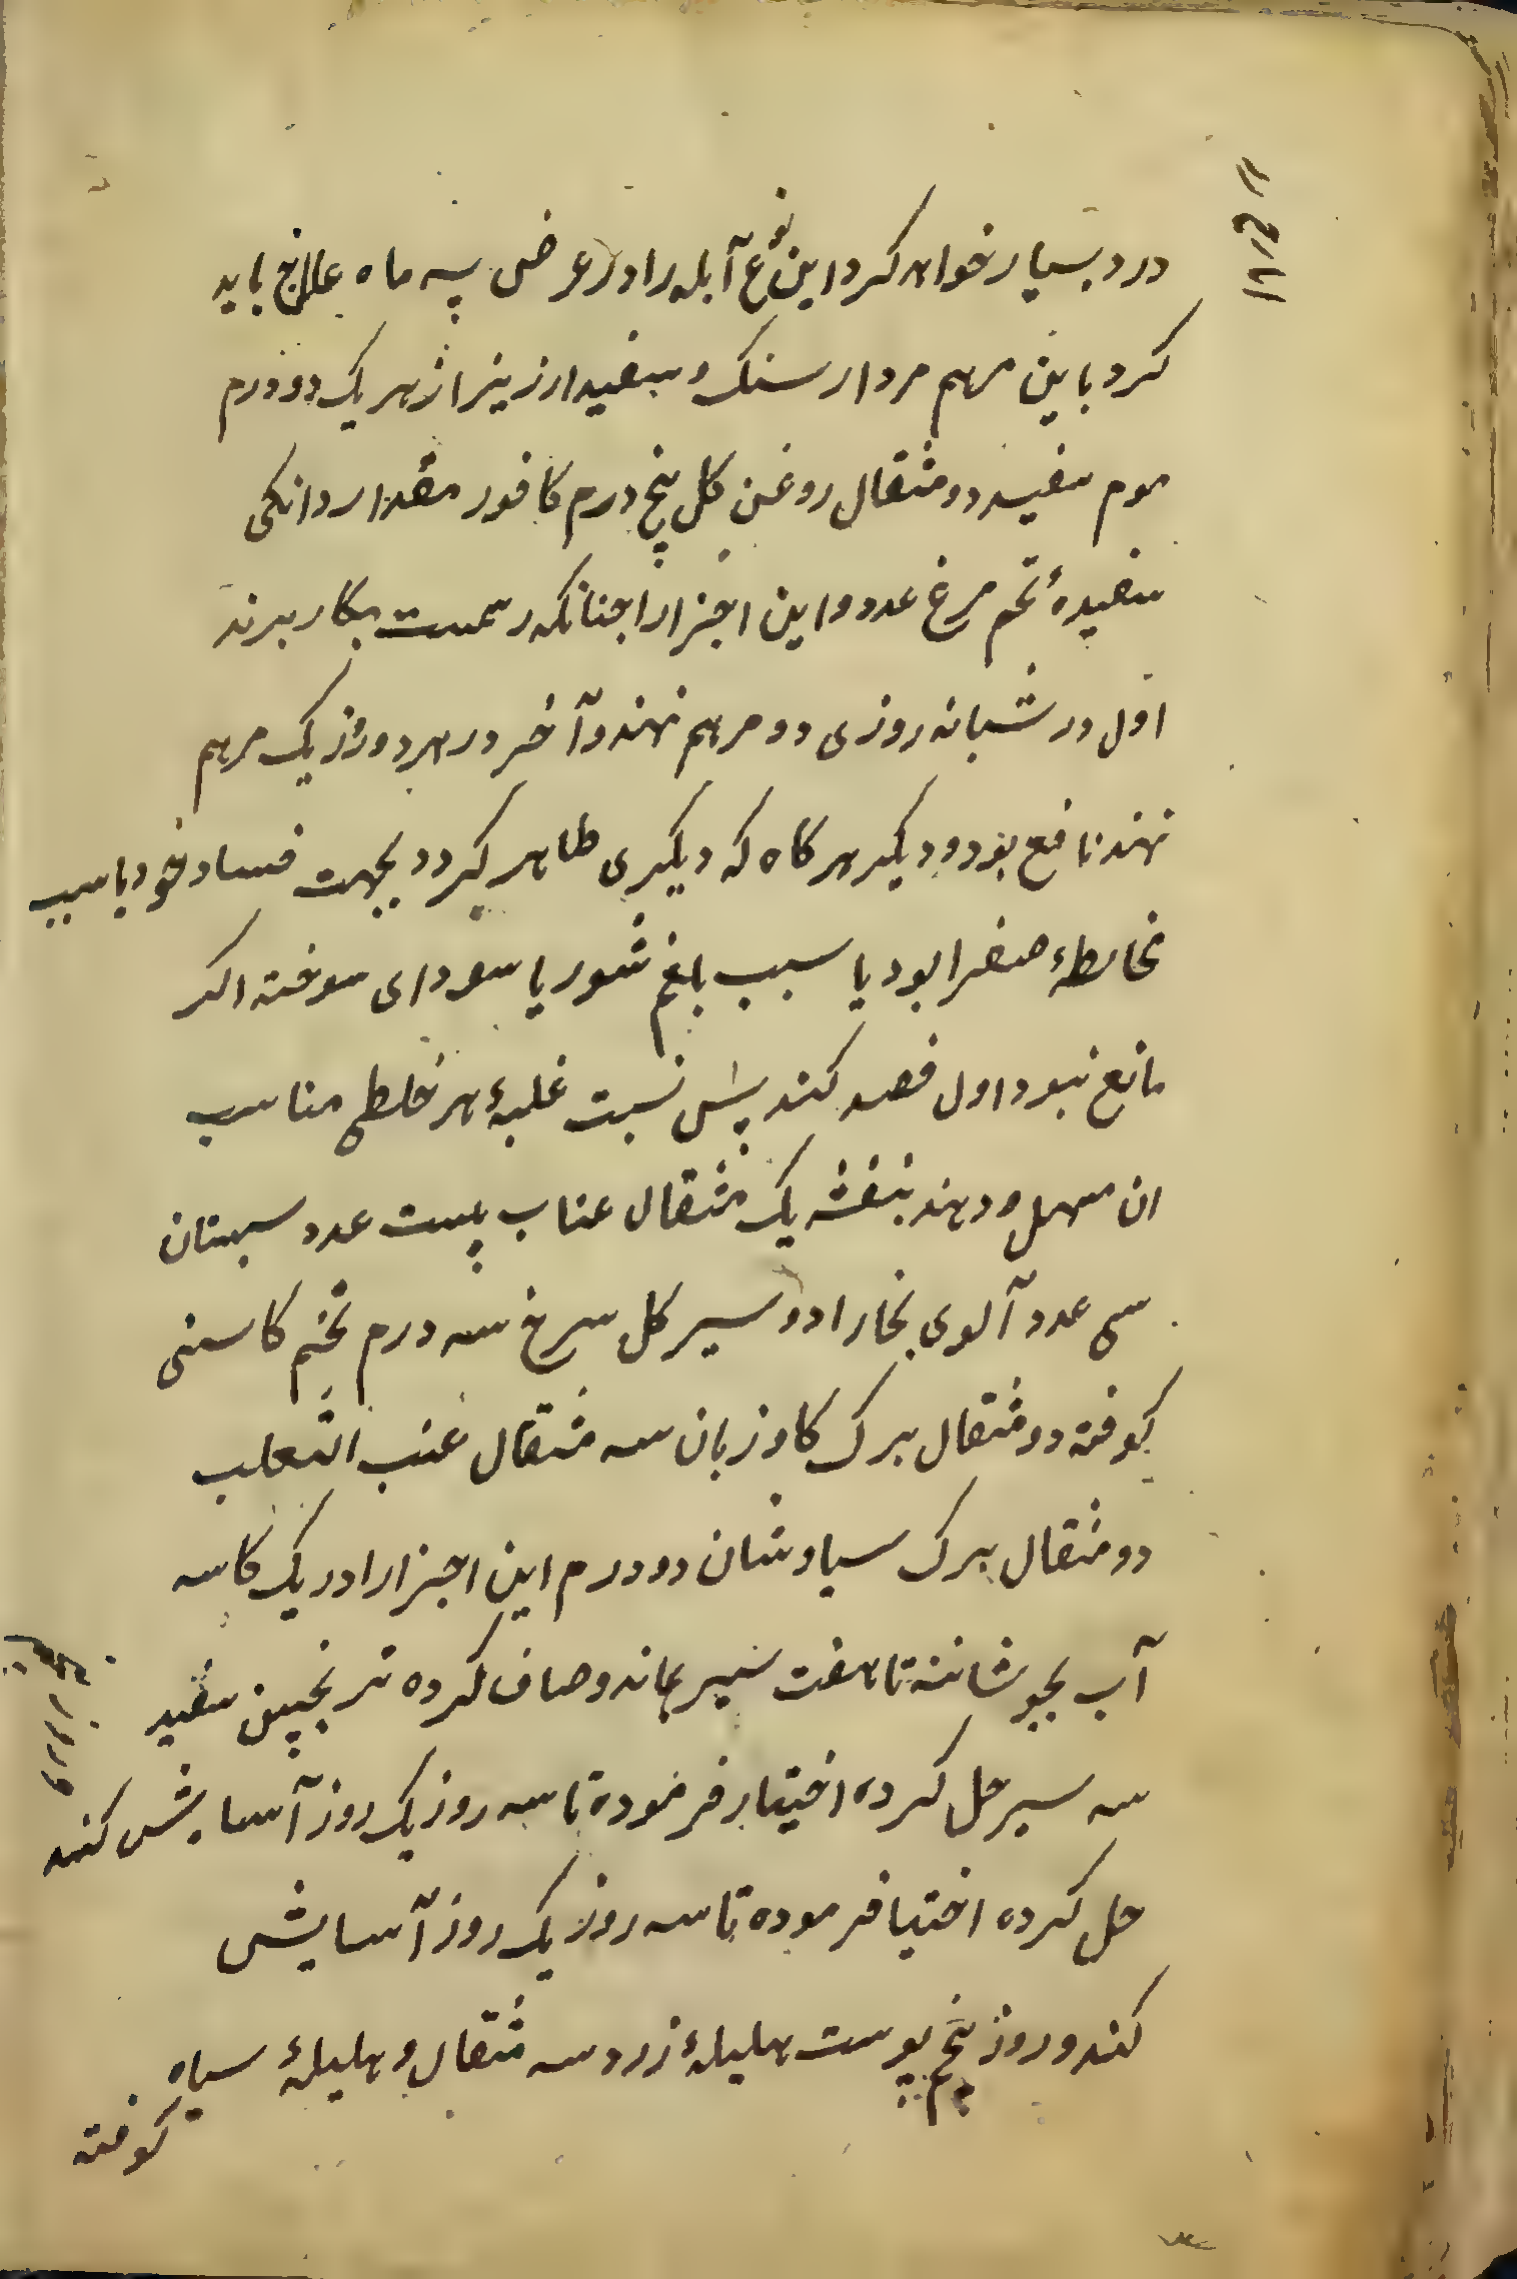 درد بسیار خواهد کرد این نوع آبله را در عرض سه ماه علاج باید
کرد باین مرهم مردار سنک و سفید ارزیز از هر یک دو درم
موم سفید دو مثقال روغن کل پنج درم کافور مقدار دانکی
سفیدهٔ تخم مرغ عدد و این اجزا را چنانکه رسمست بکار برند
اول در شبانه روزی دو مرهم نهند و آخر در هر دو روز یک مرهم
نهند نافع بود و دیکر هر کاه که دیکری ظاهر کردد بجهت فساد خود یا سبب
مخالطهٔ صفرا بود یا سبب بلغم شور یا سودای سوخته اکر
مانع نبود اول فصد کنند پس نسبت غلبهٔ هر خلطی مناسب
ان مسهل دهند بنفشه یک مثقال عناب بیست عدد سبستان
سی عدد آلوی بخارا دو سیر کل سرخ سه درم تخم کاسنی
کوفته دو مثقال برک کاوزبان سه مثقال عنب الثعلب
دو مثقال برک سیاوشان دو درم این اجزا را در یک کاسه
آب بجوشانند تا هفت سیر بماند و صاف کرده ترنجبین سفید
سه سیر حل کرده اختیار فرموده تا سه روز یک روز آسایش کنند
حل کرده اختیا فرموده تا سه روز یک روز آسایش
کند و روز پنجم پوست هلیلهٔ زرد سه مثقال و هلیلهٔ سیاه
کوفته